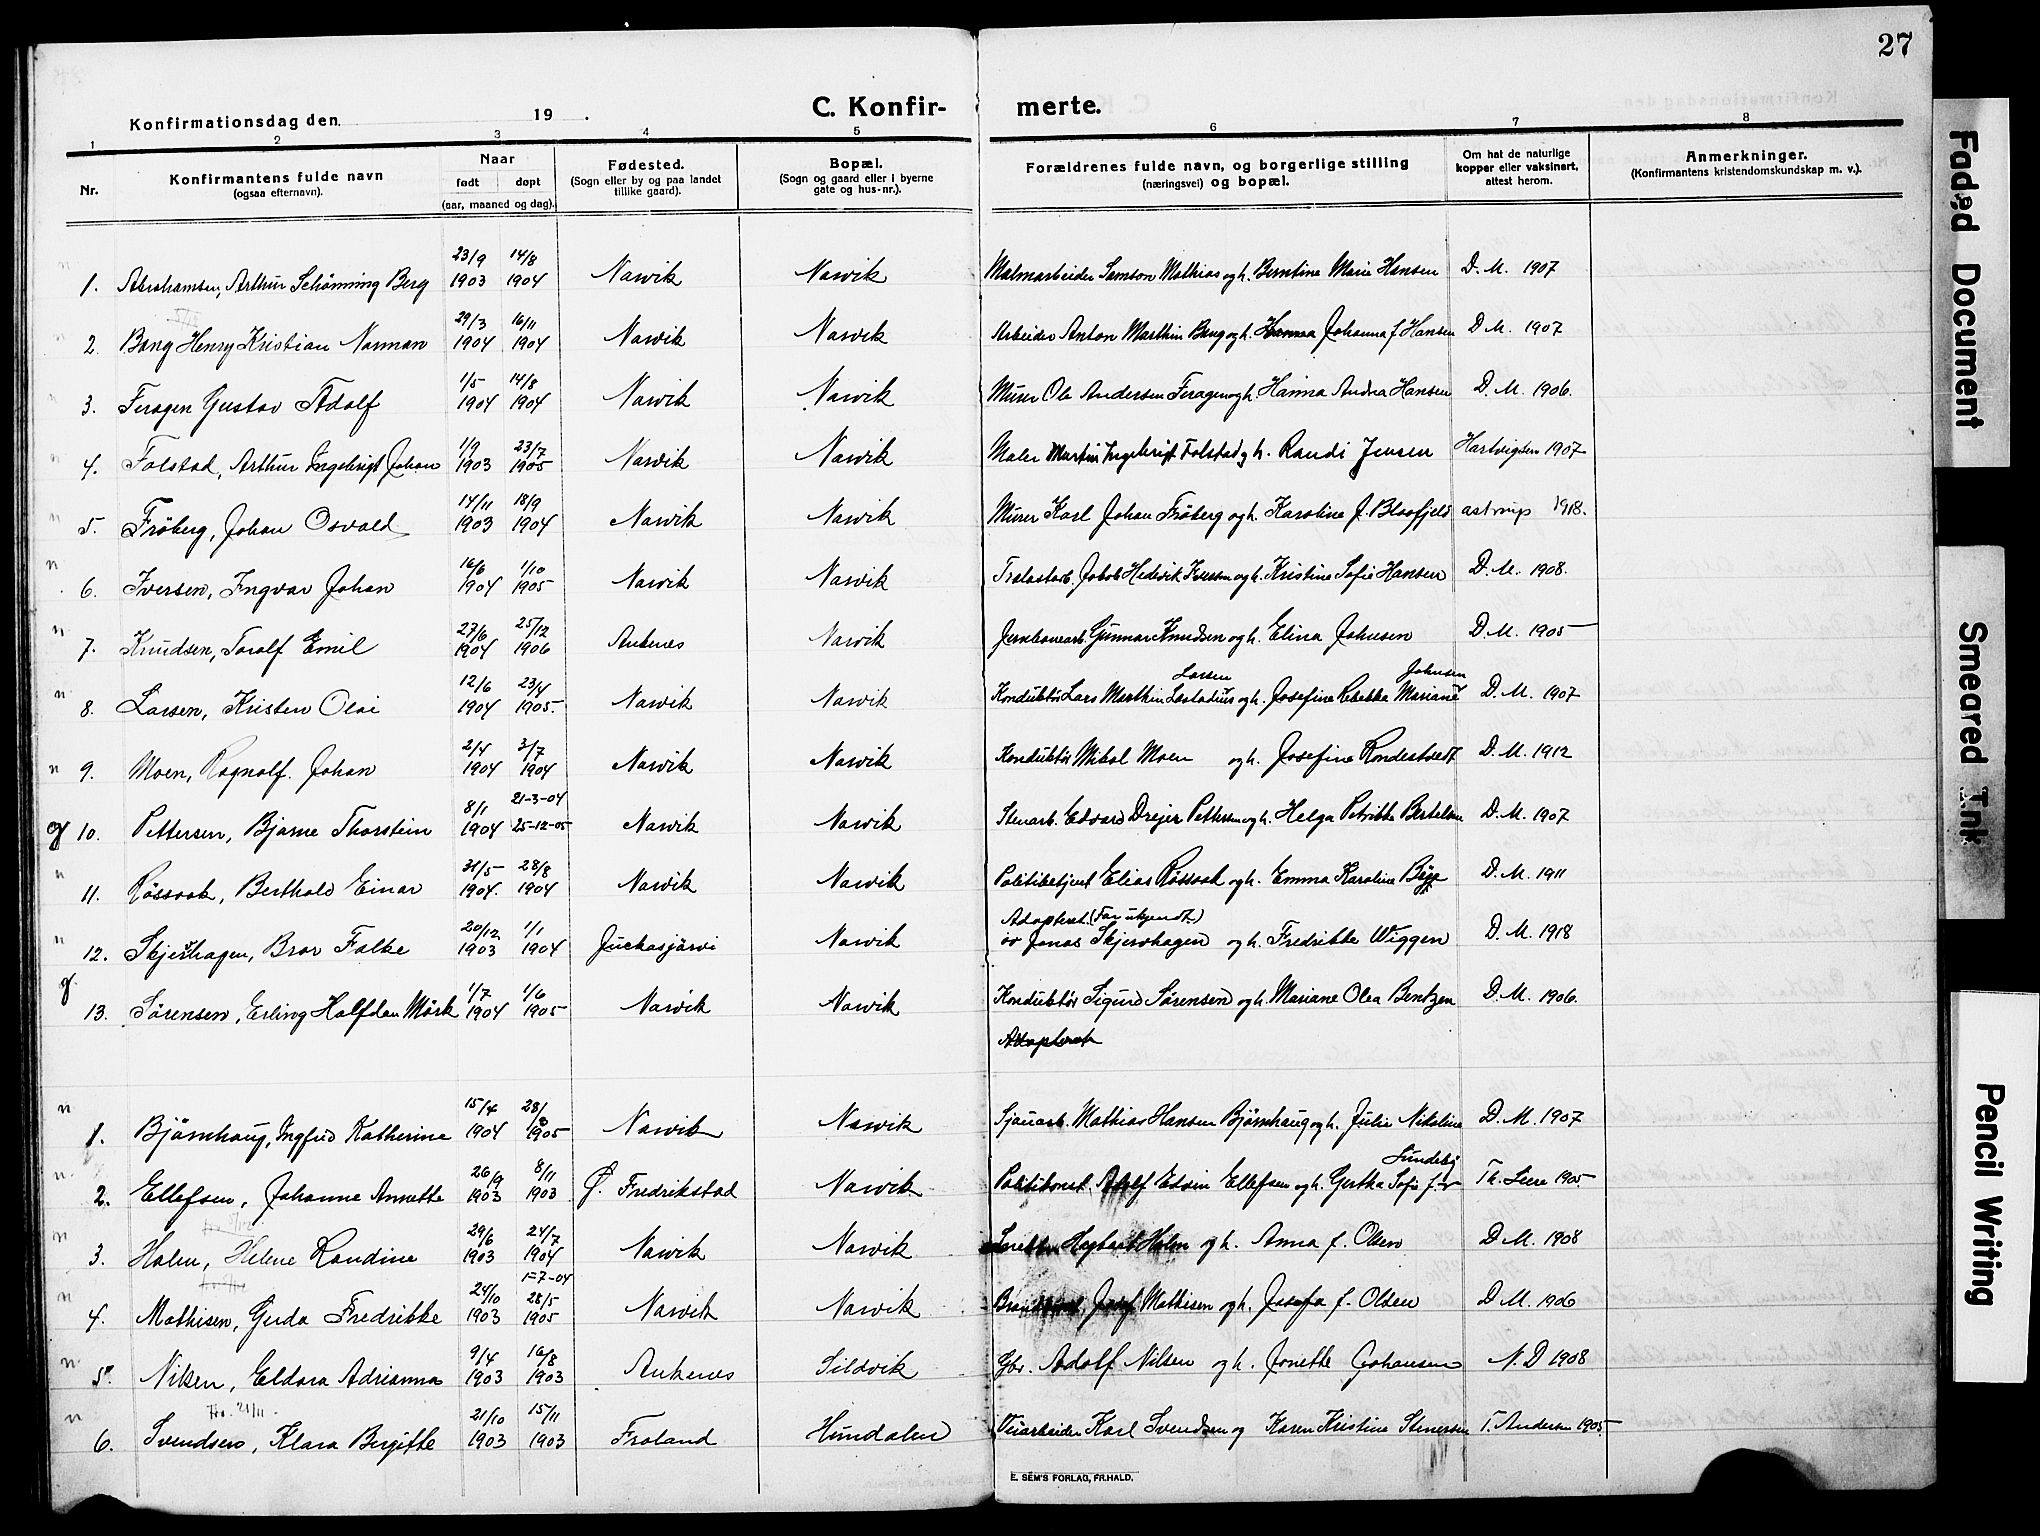 27
Konfirmationsdag den 19 .
C. Konfir- merte.
1 2 3 4 5 6 7 8
Nr. Konfirmantens fulde navn (ogsaa efternavn). Naar født døpt (aar, maaned og dag). Fødested. (Sogn eller by og paa landet tillike gaard). Bopæl. (Sogn og gaard eller i byerne gate og hus-nr.). Forældrenes fulde navn, og borgerlige stilling (næringsvei) og bopæl. Om hat de naturlige kopper eller vaksinert, attest herom. Anmerkninger. (Konfirmantens kristendomskundskap m. v.).
n 1. Abrahamsen, Arthur Schönning Berg 23/9 1903 14/8 1904 Narvik Narvik Malmarbeider Samson Mathias og h. Berntine Marie Hansen D. M. 1907
2. Bang Henry Kristian Norman 29/3 1904 16/11 1904 Narvik Narvik Arbeider Anton Marthin Bang og h. Johanna f. Hansen D. M. 1907
3. Feragen Gustav Adolf 1/5 1904 14/8 1904 Narvik Narvik Murer Ole Andersen Feragen og h. Hanna Andrea Hansen D. M. 1906.
4. Folstad, Arthur Ingebrigt Johan 1/9 1903 23/7 1905 Narvik Narvik Maler Martin Ingebrigt Folstad og h. Randi Jensen Hartvigsen 1907
5. Fröberg, Johan Osvald 14/11 1903 18/9 1904 Narvik Narvik Murer Karl Johan Fröberg og h. Karoline f. Blaafjeld astrup 1918.
n 6. Iversen, Ingvar Johan 16/6 1904 1/10 1905 Narvik Narvik Trælastarb. Jakob Hedevik Iversen og h. Kristine Sofie Hansen D. M. 1908.
n 7. Knudsen, Toralf Emil 27/6 1904 25/12 1906 Ankenes Narvik Jernbanearb. Gunnar Knudsen og h. Elina Johnsen D. M. 1905
n 8. Larsen, Kristen Olai 12/6 1904 23/4 1905. Narvik Narvik Konduktör Lars Marthin Lestadius Larsen og h. Josefine Rebekka Mariane Johnsen D. M. 1907
n 9. Moen, Ragnalf. Johan 2/4 1904 3/7 1904 Narvik Narvik Konduktör Mikal Moen og h. Josefine Rondestvedt D. M. 1912
g 10. Pettersen, Bjarne Thorstein 8/1 1904 21-3-04 25-12-05 Narvik Narvik Stenarb. Edvard Drejer Pettersen og h. Helga Petrikke Bertelsen D. M. 1907
n 11. Røsvook, Berthold Einar 31/5 1904. 28/8 1904 Narvik Narvik Politibetjent Elias Røsvook og h. Emma Karoline D. M. 1911
n 12. Skjervhagen, Bror Falke 20/12 1903 1/1 1904 Juckasjärvi Narvik Adopteret (Far ukjendt) av Jonas Skjervhagen og h. Fredrikke Wiggen D. M. 1918
g 13. Sörensen, Erling Halfdan Mörk 1/7 1904 1/6 1905 Narvik Narvik Konduktör Sigurd Sörensen og h. Mariane Olea Bentzen D. M. 1906.
Adopteret
n 1. Björnhaug, Ingfrid Katherine 15/4 1904 28/8 1905 Narvik Narvik Sjauarb. Mathias Hansen Björnhaug og h. Julie Nikoline D. M. 1907
n 2. Ellefsen, Johanne Annette 26/9 1903 8/11 1903 Ø. Fredrikstad Narvik Politikonst. Adolf Edvin Ellefsen og h. Gertha Sofie f. Sundeby Th. Lure 1905
n 3. Holm, Helene Randine 29/6 1903 24/7 1904 Narvik Narvik Hagbart Holm og h. Anna f. Olsen D. M. 1908
n 4. Mathisen, Gerda Fredrikke 24/10 1903 1-7-04 28/5 1905 Narvik Narvik Josef Mathisen og h. Josefa f. Olsen D. M. 1906
n 5. Nilsen, Eldora Adrianna 9/4 1903 16/8 1903 Ankenes Sildvik Gbr. Adolf Nilsen og h. Jonette Johansen N. D 1908
Fra. 21/11
n 6. Svendsen, Klara Birgitte 21/10 1903 15/11 1903 Froland Hundalen Veiarbeider Karl Svendsen og Karen Kristine Stenersen T. Andersen 1905.
E. SEM'S FORLAG, FR.HALD.
Faded Document
Smeared Ink
Pencil Writing